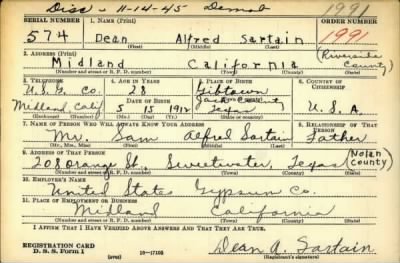 Disc - 11-14-45 Demob 1991
SERIAL NUMBER 1. NAME (Print) ORDER NUMBER
574 Dean Alfred Sartain 1991
(First) (Middle) (Last)
2. ADDRESS (Print) (Riverside
Midland California County)
(Number and street or R. F. D. number) (Town) (County) (State)
3. TELEPHONE 4. AGE IN YEARS 5. PLACE OF BIRTH 6. COUNTRY OF CITIZENSHIP
U.S.G. Co. 28 Gibtown
DATE OF BIRTH Jack County
Midland, Calif 5 15 1912 Texas U.S.A.
(Exchange) (Number) (Mo.) (Day) (Yr.)
7. NAME OF PERSON WHO WILL ALWAYS KNOW YOUR ADDRESS 8. RELATIONSHIP OF THAT PERSON
Mr. Sam Alfred Sartain Father
(Mr., Mrs., Miss) (First) (Middle) (Last)
9. ADDRESS OF THAT PERSON (Nolan
208 Orange St., Sweetwater, Texas County)
(Number and street or R. F. D. number) (Town) (County) (State)
10. EMPLOYER'S NAME
United States Gypsum Co.
11. PLACE OF EMPLOYMENT OR BUSINESS
Midland California
(Number and street or R. F. D. number) (Town) (County) (State)
I AFFIRM THAT I HAVE VERIFIED ABOVE ANSWERS AND THAT THEY ARE TRUE.
REGISTRATION CARD
D. S. S. Form 1 (over) 16-17105 Dean A. Sartain
(Registrant's signature)